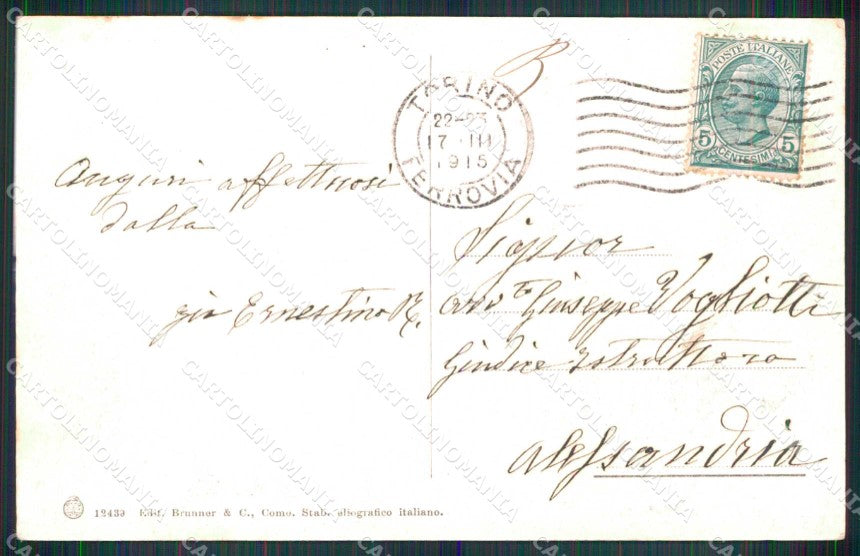 B
TORINO
22-23
17 III
1915
FERROVIA
POSTE ITALIANE
5 5
CENTESIMI
Auguri affettuosi
dalla
Ernestina
Signor
avv to Giuseppe Vogliotti
Giudice Istruttore
Alessandria
12439 Edit. Brunner & C., Como. Stab. eliografico italiano.
CARTOLINOMANIA